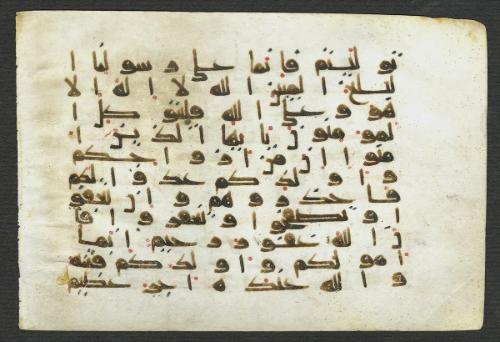 توليتم فانما على رسولنا ا
لبلغ المبين الله لا اله الا
هو وعلى الله فليتوكل ا
لمومنون يايها الذين ا
منوا ان من ازوجكم
واولدكم عدوا لكم
فاحذروهم وان تعفو
ا وتصفحوا وتغفروا فا
ن الله غفور رحيم انما
امولكم واولدكم فتنه
والله عنده اجر عظيم